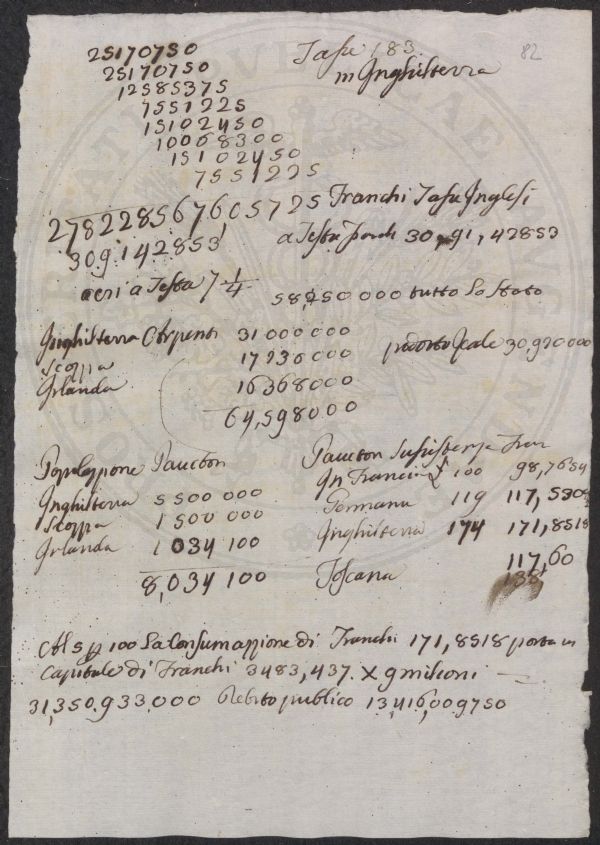 82
Tasse 183
in Inghilterra
25170750
25170750
12585375
7551225
15102450
10068300
15102450
7551225
278228567605725 Franchi Tasse Inglesi
309142853 a Testa 30,91,42853
a Testa 7 1/4
58,250000 tutto lo stato
Inghilterra 31000000
Scozia 17230000 30,920000
Irlanda 16368000
64,598000
Popolazione Paucton
Inghilterra 5500000
Scozia 1500000
Irlanda 1034100
8,034100
Paucton Sussistenza Fran
In Francia 100 98,7654
Germania 119 117,530
Inghilterra 174 171,8518
Toscana 117,60
138
Al 5 p 100 La Consumazione di Franchi 171,8518 porta un
Capitale di Franchi 3483,437. X 9 milioni
31,350.933.000 Debito publico 13,416,009750